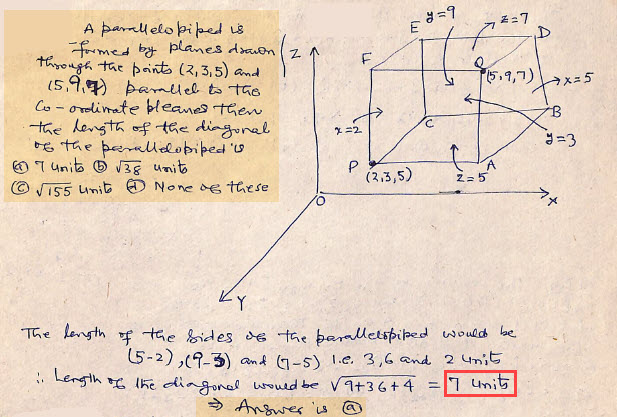 A parallelopiped is
formed by planes drawn
through the points (2,3,5) and
(5,9,7) parallel to the
Co-ordinate pleanes then
the length of the diagonal
of the parallelopiped is
(a) 7 units (b) √38 units
(c) √155 unit (d) None of these
Z
y=9
z=7
E
D
F
Q
(5,9,7)
x=5
x=2
C
B
y=3
P
(2,3,5)
z=5
A
O
X
Y
The length of the sides of the parallelopiped would be
(5-2), (9-3) and (7-5) i.e. 3,6 and 2 units
∴ Length of the diagonal would be √9+36+4 = 7 units
⇒ Answer is (a)